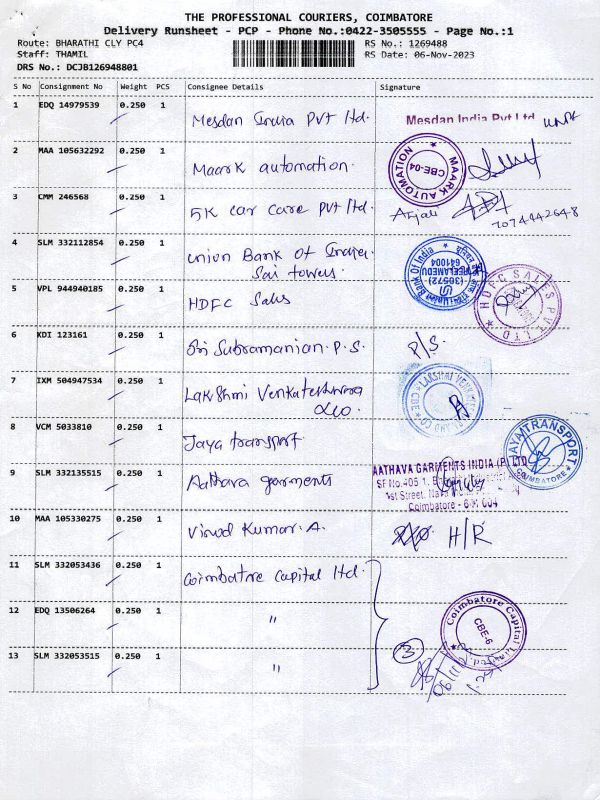 THE PROFESSIONAL COURIERS, COIMBATORE
Delivery Runsheet - PCP - Phone No.:0422-3505555 - Page No.:1
Route: BHARATHI CLY PC4 RS No.: 1269488
Staff: THAMIL RS Date: 06-Nov-2023
DRS No.: DCJB126948801
S No Consignment No Weight PCS Consignee Details Signature
1 EDQ 14979539 0.250 1 Mesdan India Pvt ltd. Mesdan India Pvt Ltd
2 MAA 105632292 0.250 1 Maark automation. MAARK AUTOMATION CBE-04
3 CMM 246568 0.250 1 5K car care pvt ltd. Anjali 7074442648
4 SLM 332112854 0.250 1 union Bank Of India. Union Bank Of India (30572) PEELAMEDU 641004
Sai towers
5 VPL 944940185 0.250 1 HDFC Sales HDFC SALES PVT LTD
6 KDI 123161 0.250 1 Sri Subramanian. P.S. P/S.
7 IXM 504947534 0.250 1 Lakshmi Venkateshwara LAKSHMI CBE
&co.
8 VCM 5033810 0.250 1 Jaya transport JAYA TRANSPORT COIMBATORE
9 SLM 332135515 0.250 1 Aathava garments AATHAVA GARMENTS INDIA (P) LTD
SF No.405 1,
1st Street,
Coimbatore - 641 004
10 MAA 105330275 0.250 1 Vinod Kumar. A. H/R
11 SLM 332053436 0.250 1 Coimbatore Capital ltd.
12 EDQ 13506264 0.250 1 " Coimbatore Capital Limited. CBE-6
13 SLM 332053515 0.250 1 " 3
06/11